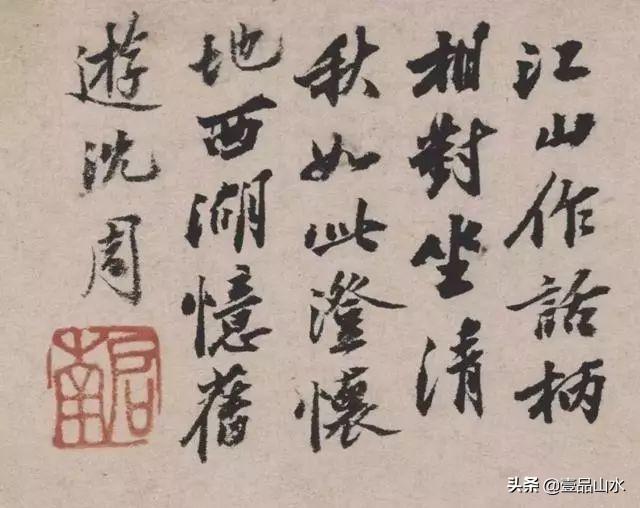 江山作話柄
相對坐清
秋如此澄懷
地西湖憶舊
遊沈周
啟南
头条 @壹品山水